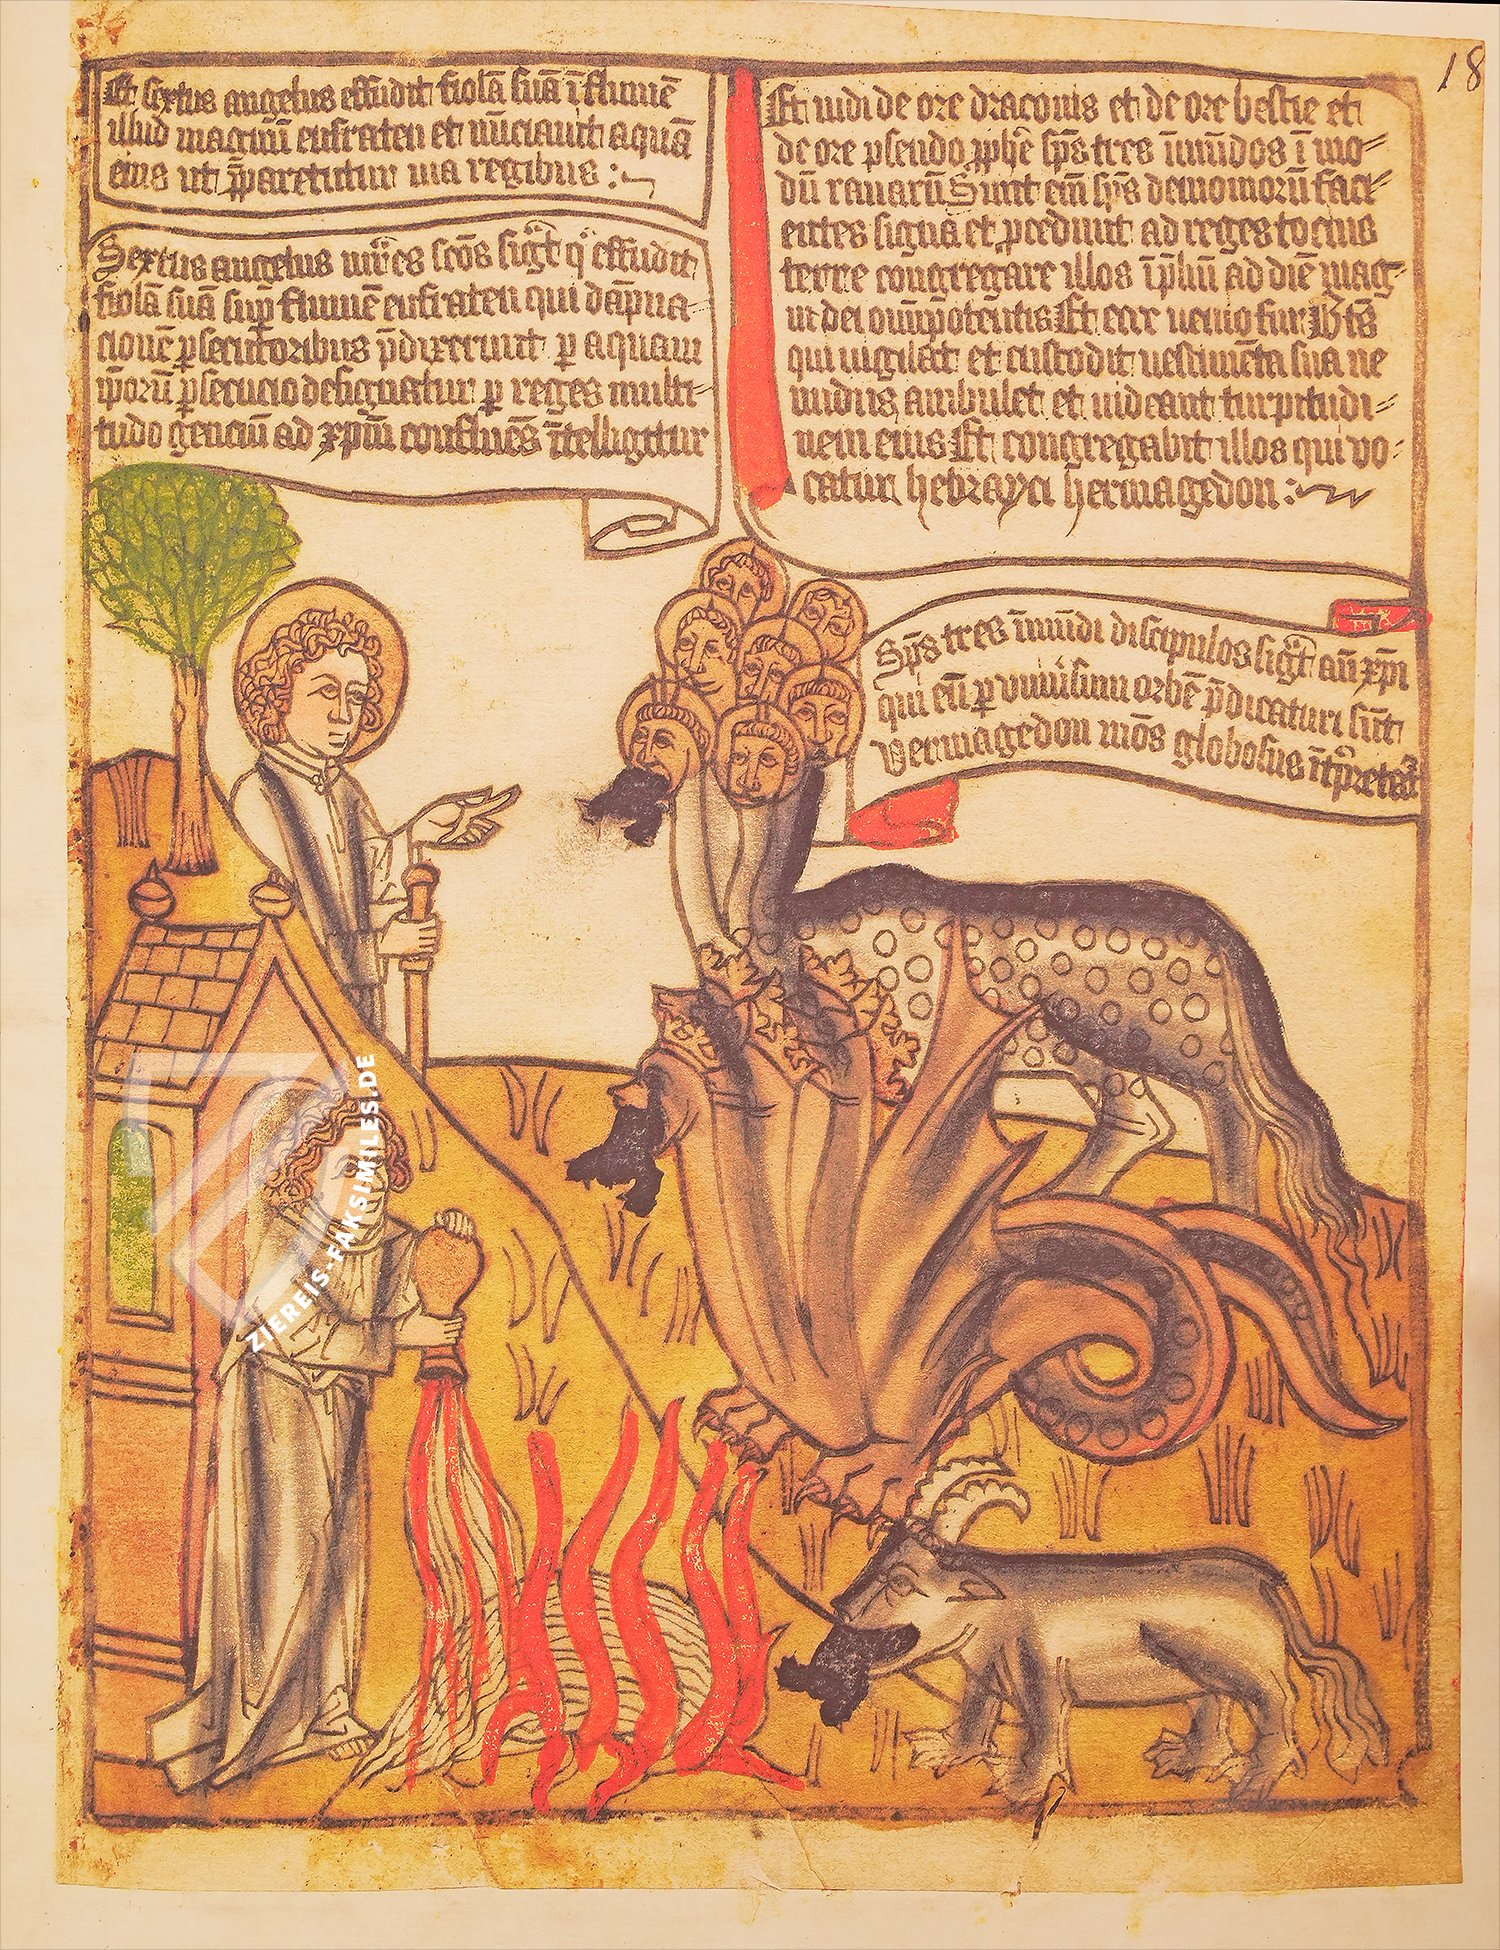 Et sextus angelus effudit fiolā suā ī flumē
illud magnū eufraten et
eius ut p̄pararetur uia regibus :
Sextus angelus uniuersos scōs sigt q effudit
fiolā suā sup flumē eufraten qui dāpna-
cionē psecutoribus p̄dixerunt p aquam
iporū psecucio designatur p reges multi-
tudo genciū ad xpm confluēs ītelligitur
Et uidi de ore draconis et de ore bestie et
de ore pseudo pphe sps tres īmūdos ī mo-
dū ranarū Sunt em sps demoniorū faci-
entes signa et pcedunt ad reges tocius
terre congregare illos ī pliū ad diē mag-
ni dei omīpotentis Et ecce uenio fur Bts
qui uigilat et custodit uestimēta sua ne
nudus ambulet et uideant turpitudi-
nem eius Et congregabit illos qui uo-
catur hebrayci hermagedon :
Sps tres īmūdi discipulos sigt an xpi
qui p uniuersum orbē p̄dicaturi sūt
Hermagedon mōs globosus ītpretat
18
ZIEREIS-FAKSIMILES.DE